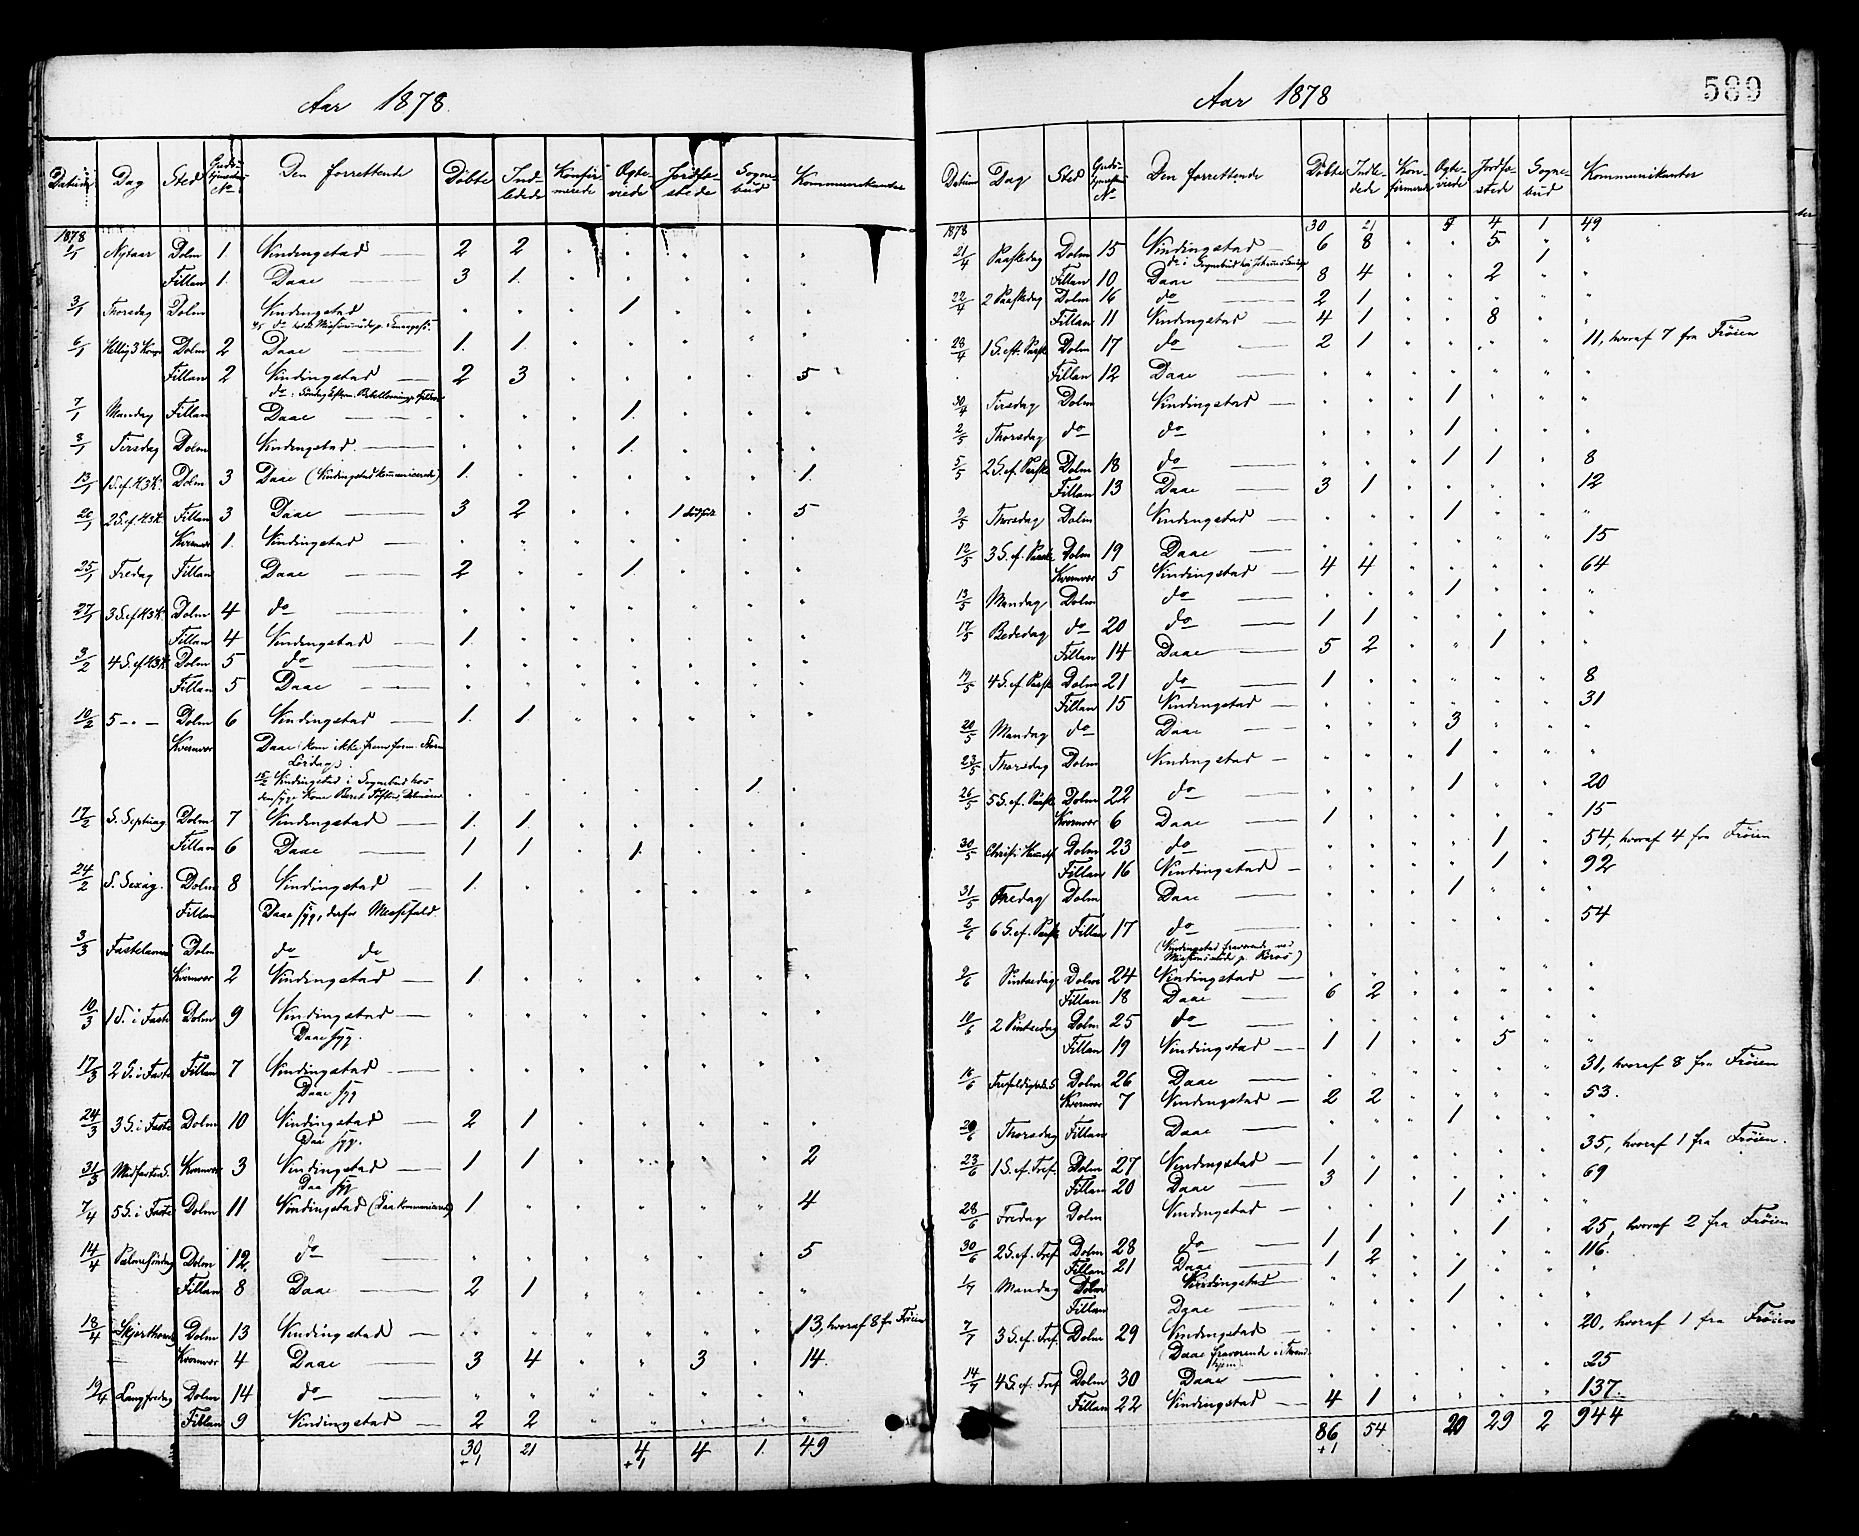 Aar 1878.
Datum Dag Sted Guds-tjeneste No Den forrettende Døbte Ind-ledede Konfir-merede Ægte-viede Jordfæ-stede Sogne-bud Kommunikanter
1878
1/1 Nytaar Dolm 1. Vindingstad 2 2 " " " " "
Fillan 1. Daae 3 1. " " " " "
3/1 Thorsdag Dolm Vindingstad " " " 1. " " "
6/1 Hellig 3 Konge Dolm 2 Daae 1. 1. " " " " "
Fillan 2 Vindingstad 2 3 " " " " 5
7/1 Mandag Fillan Daae " " " 1. " " "
8/1 Tirsdag Dolm Vindingstad " " " 1. " " "
13/1 1 S. ef. H3K. Dolm 3 Daae (Vindingstad kommunicerede) 1. " " " " " 1.
20/1 2 S. ef. H3K. Fillan 3 Daae 3 2 " " 1 dødfødt " 5
Kvernvær 1. Vindingstad " " " " " " "
25/1 Fredag Fillan Daae 2 " " 1. " " "
27/1 3 S. ef H3K. Dolm 4 do " " " " " " "
Fillan 4 Vindingstad 1. " " " " " "
3/2 4 S. ef H3K Dolm 5 do " " " " " " "
Fillan 5 Daae " " " " " " "
10/2 5 - " - Dolm 6 Vindingstad 1. 1. " " " " "
Kvernvær Daae kom ikke frem form. Storm
Lørdag.
15/2 Vindingstad i Sognebud hos
den syge Kone Beret " " " " " 1. "
17/2 S. Septuag Dolm 7 Vindingstad 1. 1. " " " " "
Fillan 6 Daae 1 1 " 1. " " "
24/2 S. Sexag. Dolm 8 Vindingstad 1. " " " " " "
Fillan Daae syg, derfor Messefald.
3/3 Fastelavns Dolm do do
Kvernvær 2 Vindingstad 1. " " " " " "
10/3 1 S. i Faste Dolm 9 Vindingstad " " " " " " "
Daae syg.
17/3 2 S. i Faste Fillan 7 Vindingstad " " " " " " "
Daae syg
24/3 3 S. i Faste Dolm 10 Vindingstad 2 1 " " " " "
Daae syg.
31/3 Midfaste S. Kvernvær 3 Vindingstad 1 1 " " " " 2
Daae syg
7/4 5 S. i Faste Dolm 11 Vindingstad (Daae kommunicerede) 1. " " " " " 4
14/4 Palmesöndag Dolm 12. do " " " " " " 5
Fillan 8 Daae 2 1 " " " " "
18/4 Skjærthorsd Dolm 13 Vindingstad " " " " " " 13, hvoraf 8 fr Frøien
Kvernvær 4 Daae 3 4 " " 3 " 14.
19/4 Langfredag Dolm 14 do " " " " " " "
Fillan 9 Vindingstad 2 2 " " " " "
30 21 4 4 1. 49
+1 +1
Aar 1878
589
Datum Dag Sted Guds-tjeneste No Den forrettende Døbte Indle-dede Kon-firmerede Ægte-viede Jordfæ-stede Sogne-bud Kommunikanter
1878 30 21 5 4 1 49
21/4 Paaskedag Dolm 15 Vindingstad 6 8 " " 5 " "
do i Sognebud 1
Fillan 10 Daae 8 4 " " 2 " "
22/4 2 Paaskedag Dolm 16 do 2 1 " " " " "
Fillan 11 Vindingstad 4 1 " " 8 " "
28/4 1 S. eft. Paaske Dolm 17 do 2 1 " " " " 11, hvoraf 7 fra Frøien
Fillan 12 Daae " " " " " " "
30/4 Tirsdag Dolm Vindingstad " " " 1 " " "
2/5 Thorsdag do do " " " 1 " " "
5/5 2 S. ef. Paaske Dolm 18 do " " " 1 1 " 8
Fillan 13 Daae 3 1 " " " " 12
9/5 Thorsdag Dolm Vindingstad " " " 1 " " "
12/5 3 S. ef. Paaske Dolm 19 Daae " " " " " " 15
Kvernvær 5 Vindingstad 4 4 " " " " 64
13/5 Mandag Dolm do " " " 1 " " "
17/5 Bededag do 20 do 1 1 " " " " "
Fillan 14 Daae 5 2 " " 1 " "
19/5 4 S. ef Paaske Dolm 21 do 1 " " " " " 8
Fillan 15 Vindingstad " " " " " " 31
20/5 Mandag do Daae " " " 3 " " "
23/5 Thorsdag Dolm Vindingstad " " " 1 " " "
26/5 5 S. ef. Paaske Dolm 22 do " " " 1 " " 20
Kvernvær 6 Daae 1 " " " " " 15
30/5 Christi Himmelf. Dolm 23 do " " " " 1 " 54, hvoraf 4 fra Frøien
Fillan 16 Vindingstad " " " " 1 " 92
31/5 Fredag Dolm Daae " " " 1 " " "
2/6 6 S. ef. Paaske Fillan 17 do " " " " " " 54
(Vindingstad fraværende ved
Missionsmøde p. Røros)
9/6 Pintsedag Dolm 24 Vindingstad " " " " " " "
Fillan 18 Daae 6 2 " " " " "
10/6 2 Pintsedag Dolm 25 do " " " " " " "
Fillan 19 Vindingstad 1 1 " " 5 " "
16/6 Trefoldigheds S Dolm 26 Daae " " " " " " 31, hvoraf 8 fra Frøien
Kvernvær 7 Vindingstad 2 2 " " " " 53.
20/6 Thorsdag Fillan Daae " " " 1 " " "
23/6 1 S. ef. Tref. Dolm 27 Vindingstad 1 " " " " " 35, hvoraf 1 fra Frøien.
Fillan 20 Daae 3 1 " " " " 69
28/6 Fredag Dolm Vindingstad " " " 1 " " "
30/6 2 S. ef. Tref Dolm 28 do 1 1 " " 1 " 25, hvoraf 2 fra Frøien
Fillan 21 Daae 1 2 " " " " 116.
1/7 Mandag Dolm Vindingstad " " " 1 " " "
Fillan Daae " " " 1 " " "
7/7 3 S. ef. Tref. Dolm 29 Vindingstad " " " " " " 20, hvoraf 1 fra Frøien
(Daae fraværende i Thrond-
hjem)
14/7 4 S. ef. Tref Dolm 30 Daae " " " " " " 25
Fillan 22 Vindingstad 4 1 " " " " 137.
86 54 20 29 2 944
+1